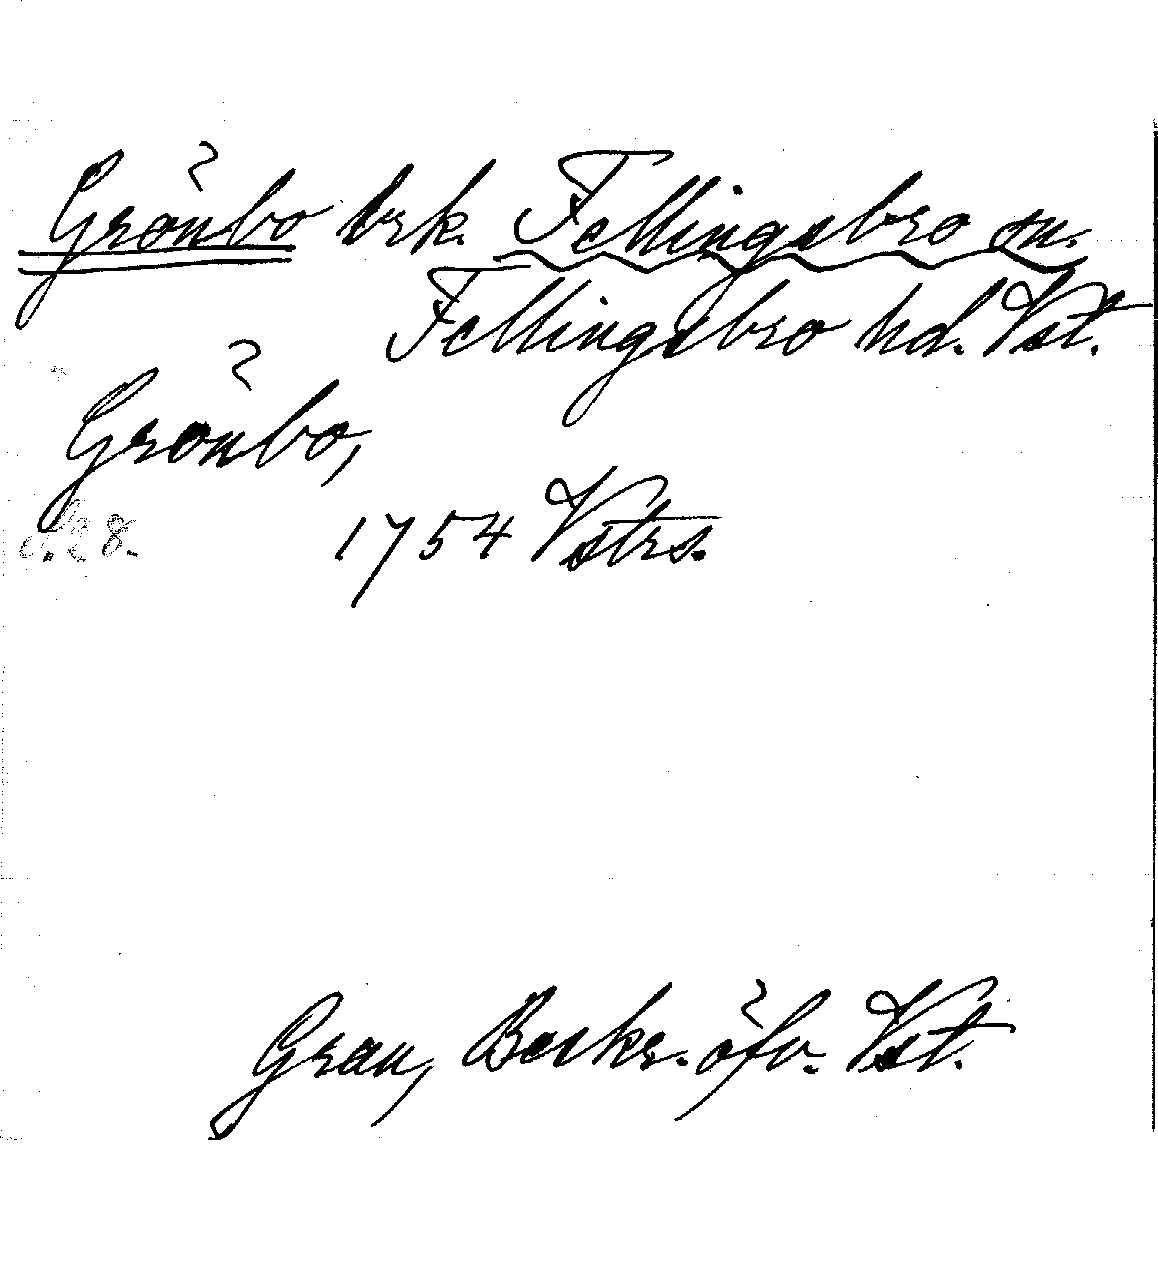 Grönbo brk. Fellingsbro sn.
Fellingsbro hd. Vst.
Grönbo,
1754 Vstrs.
Grau, Beskr. öfv. Vst.